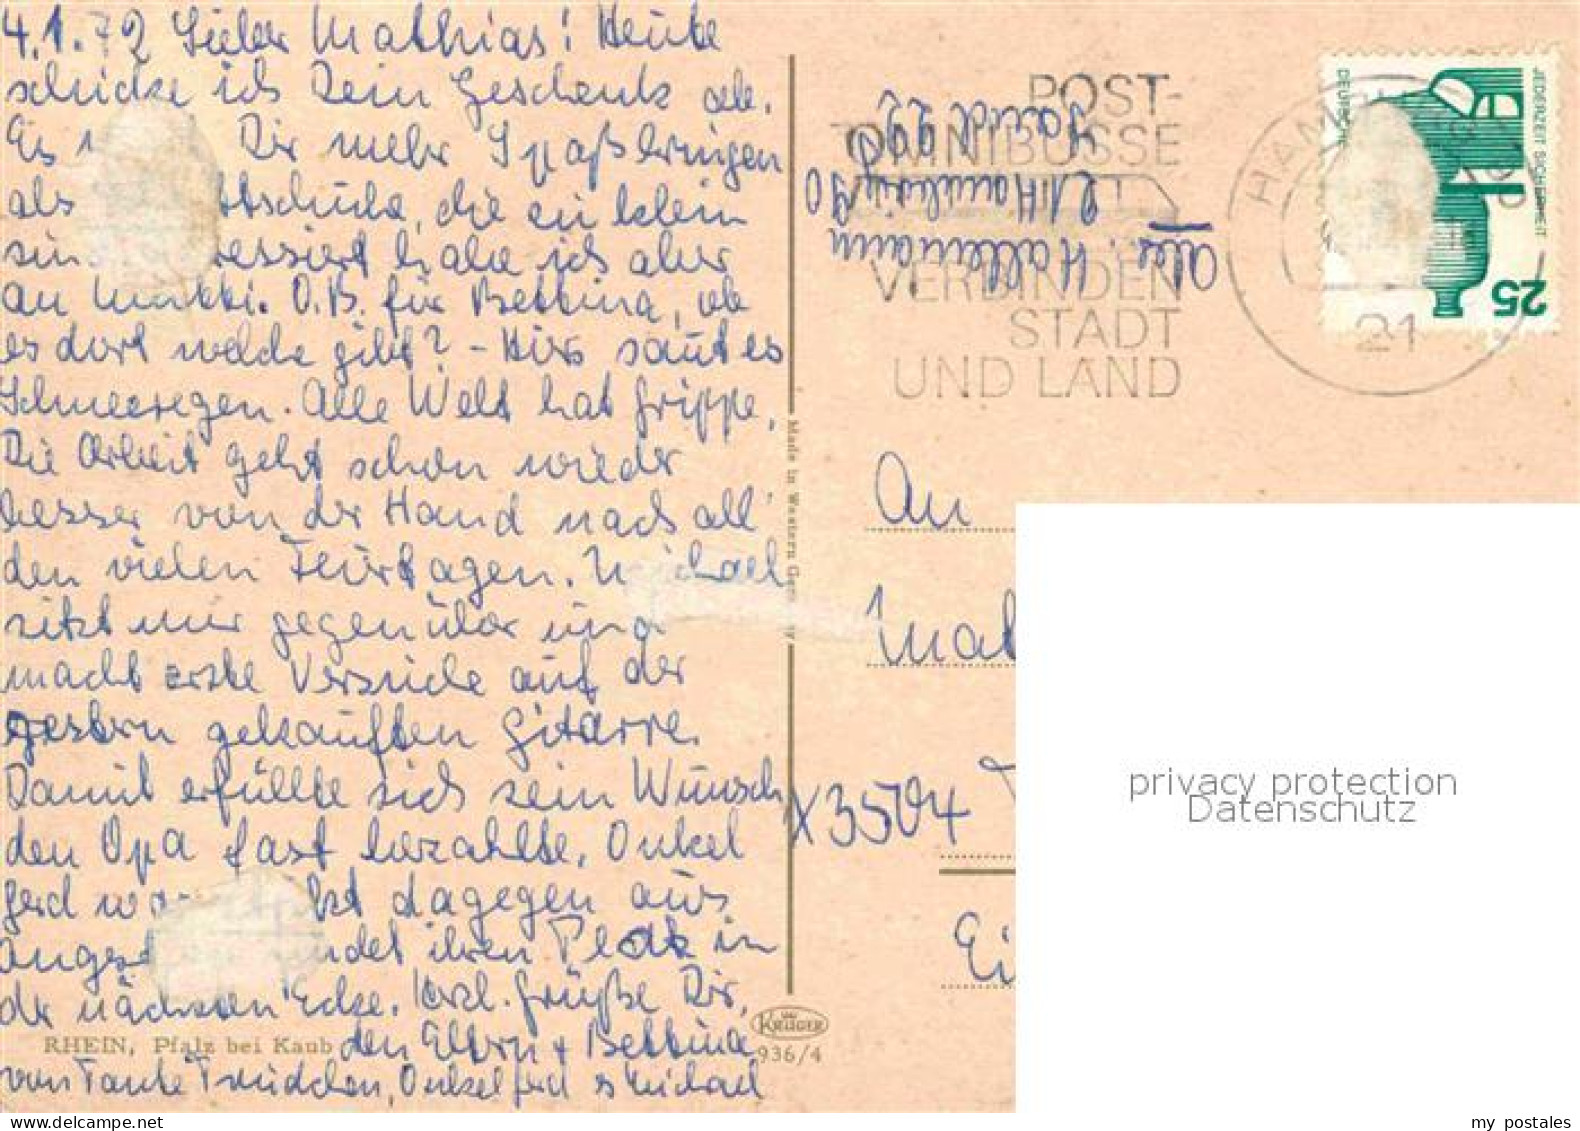 4.1.72 Lieber Mathias! Heute
schicke ich Dein Geschenk ab.
Es Dir mehr Spaß bringen
als die zu klein
habe ich aber
an Mutti. O.B. für Bettina, ob
es dort welche gibt? - Hier saut es
Schneeregen. Alle Welt hat Grippe,
Die Arbeit geht schon wieder
besser von der Hand nach all'
den vielen Feiertagen. Michael
sitzt mir gegenüber und
macht erste Versuche auf der
gestern gekauften Gitarre.
Damit erfüllte sich sein Wunsch
den Opa fast bezahlte. Onkel
Gerd dagegen aus
ihren Platz in
der nächsten Ecke. Herzl. Grüße Dir,
den Eltern + Bettina
von Tante Trudchen, Onkel Gerd & Michael
RHEIN, Pfalz bei Kaub
Made in Western Germany
KRÜGER
936/4
POST-
MINIBUSSE
VERBINDEN
STADT
UND LAND
Abs. Hallmann
21 Hamburg 90
HAMBURG
21
DEUTSCHE
JEDERZEIT SICHERHEIT
25
An
Mat
X3504
Ei
privacy protection
Datenschutz
my postales